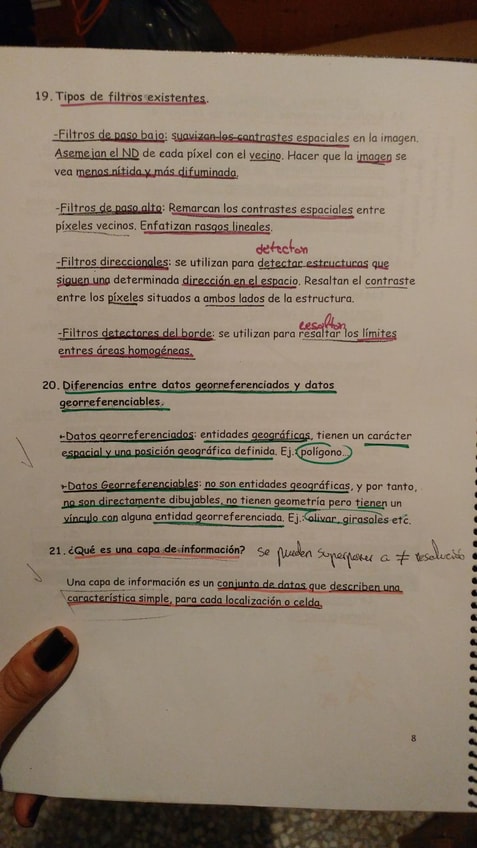 19. Tipos de filtros existentes.
-Filtros de paso bajo: suavizan los contrastes espaciales en la imagen.
Asemejan el ND de cada píxel con el vecino. Hacer que la imagen se
vea menos nítida y más difuminada.
-Filtros de paso alto: Remarcan los contrastes espaciales entre
píxeles vecinos. Enfatizan rasgos lineales.
detectan
-Filtros direccionales: se utilizan para detectar estructuras que
siguen una determinada dirección en el espacio. Resaltan el contraste
entre los píxeles situados a ambos lados de la estructura.
resaltan
-Filtros detectores del borde: se utilizan para resaltar los límites
entres áreas homogéneas.
20. Diferencias entre datos georreferenciados y datos
georreferenciables.
-Datos georreferenciados: entidades geográficas, tienen un carácter
espacial y una posición geográfica definida. Ej.: polígono..
-Datos Georreferenciables: no son entidades geográficas, y por tanto,
no son directamente dibujables, no tienen geometría pero tienen un
vínculo con alguna entidad georreferenciada. Ej.: olivar, girasoles etc.
21. ¿Qué es una capa de información? se pueden superponer a ≠ resolución
Una capa de información es un conjunto de datos que describen una
característica simple, para cada localización o celda.
8